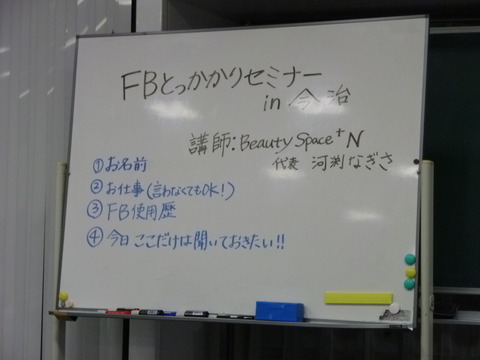 FBとっかかりセミナー
in 今治
講師:Beauty Space+N
代表 河渕なぎさ
①お名前
②お仕事(言わなくてもOK!)
③FB使用歴
④今日ここだけは聞いておきたい!!